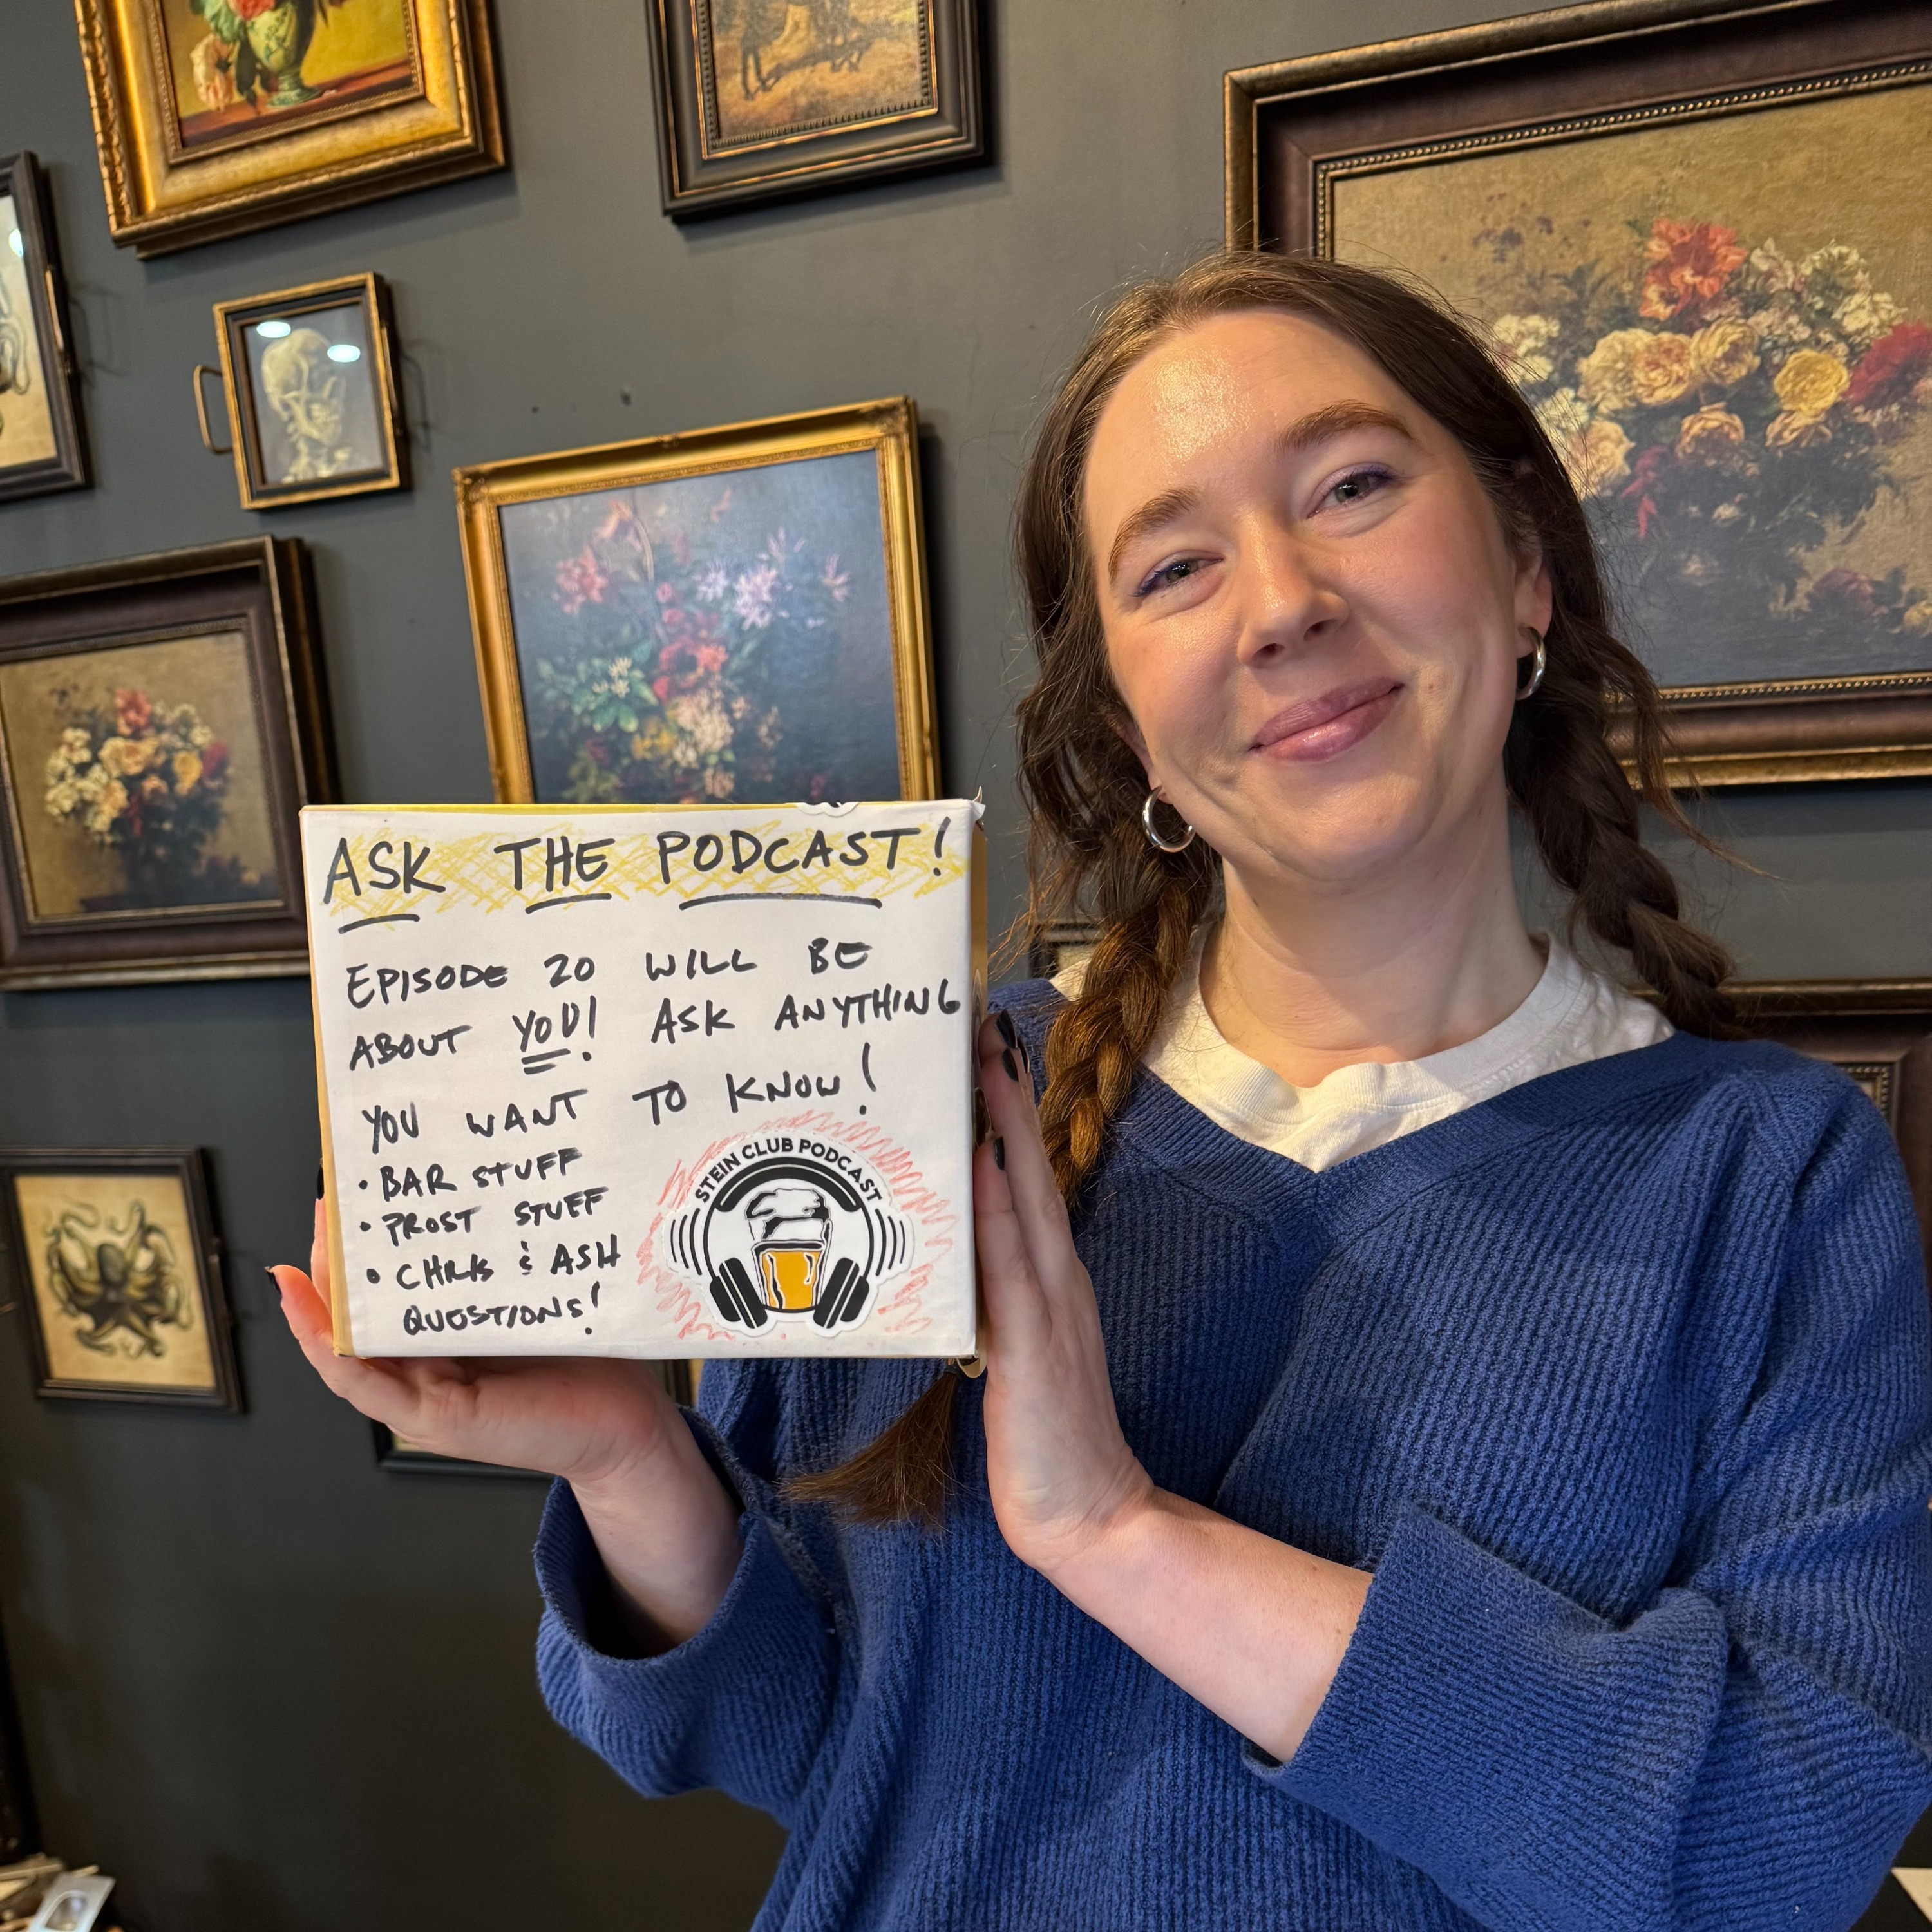 ASK THE PODCAST!
EPISODE 20 WILL BE
ABOUT YOU! ASK ANYTHING
YOU WANT TO KNOW!
• BAR STUFF
• PROST STUFF
• CHRIS & ASH
QUESTIONS!
STEIN CLUB PODCAST